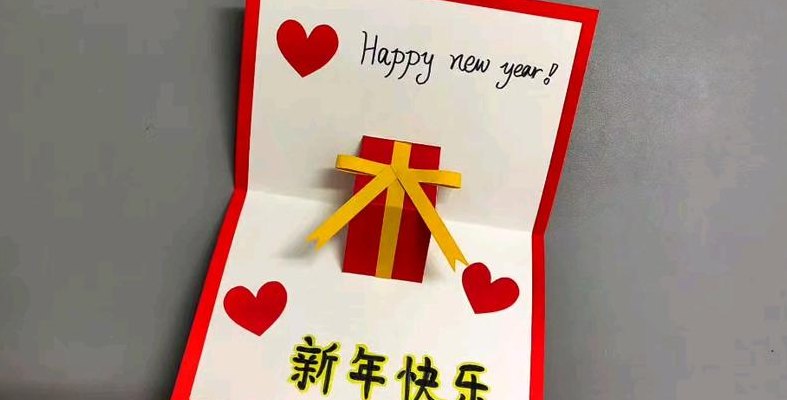 Happy new year!
新年快乐